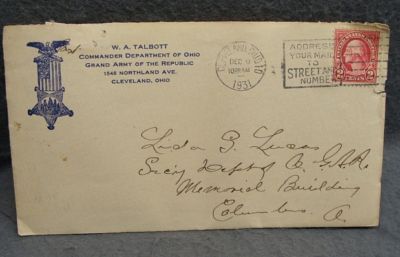 W. A. TALBOTT
COMMANDER DEPARTMENT OF OHIO
GRAND ARMY OF THE REPUBLIC
1548 NORTHLAND AVE.
CLEVELAND, OHIO
CLEVELAND, OHIO
DEC 9
1931
ADDRESS
YOUR MAIL
TO
STREET AND
NUMBER
2 CENTS 2
Linda L. Lucas
Secy Dept of O. G.A.R.
Memorial Building
Columbus. O